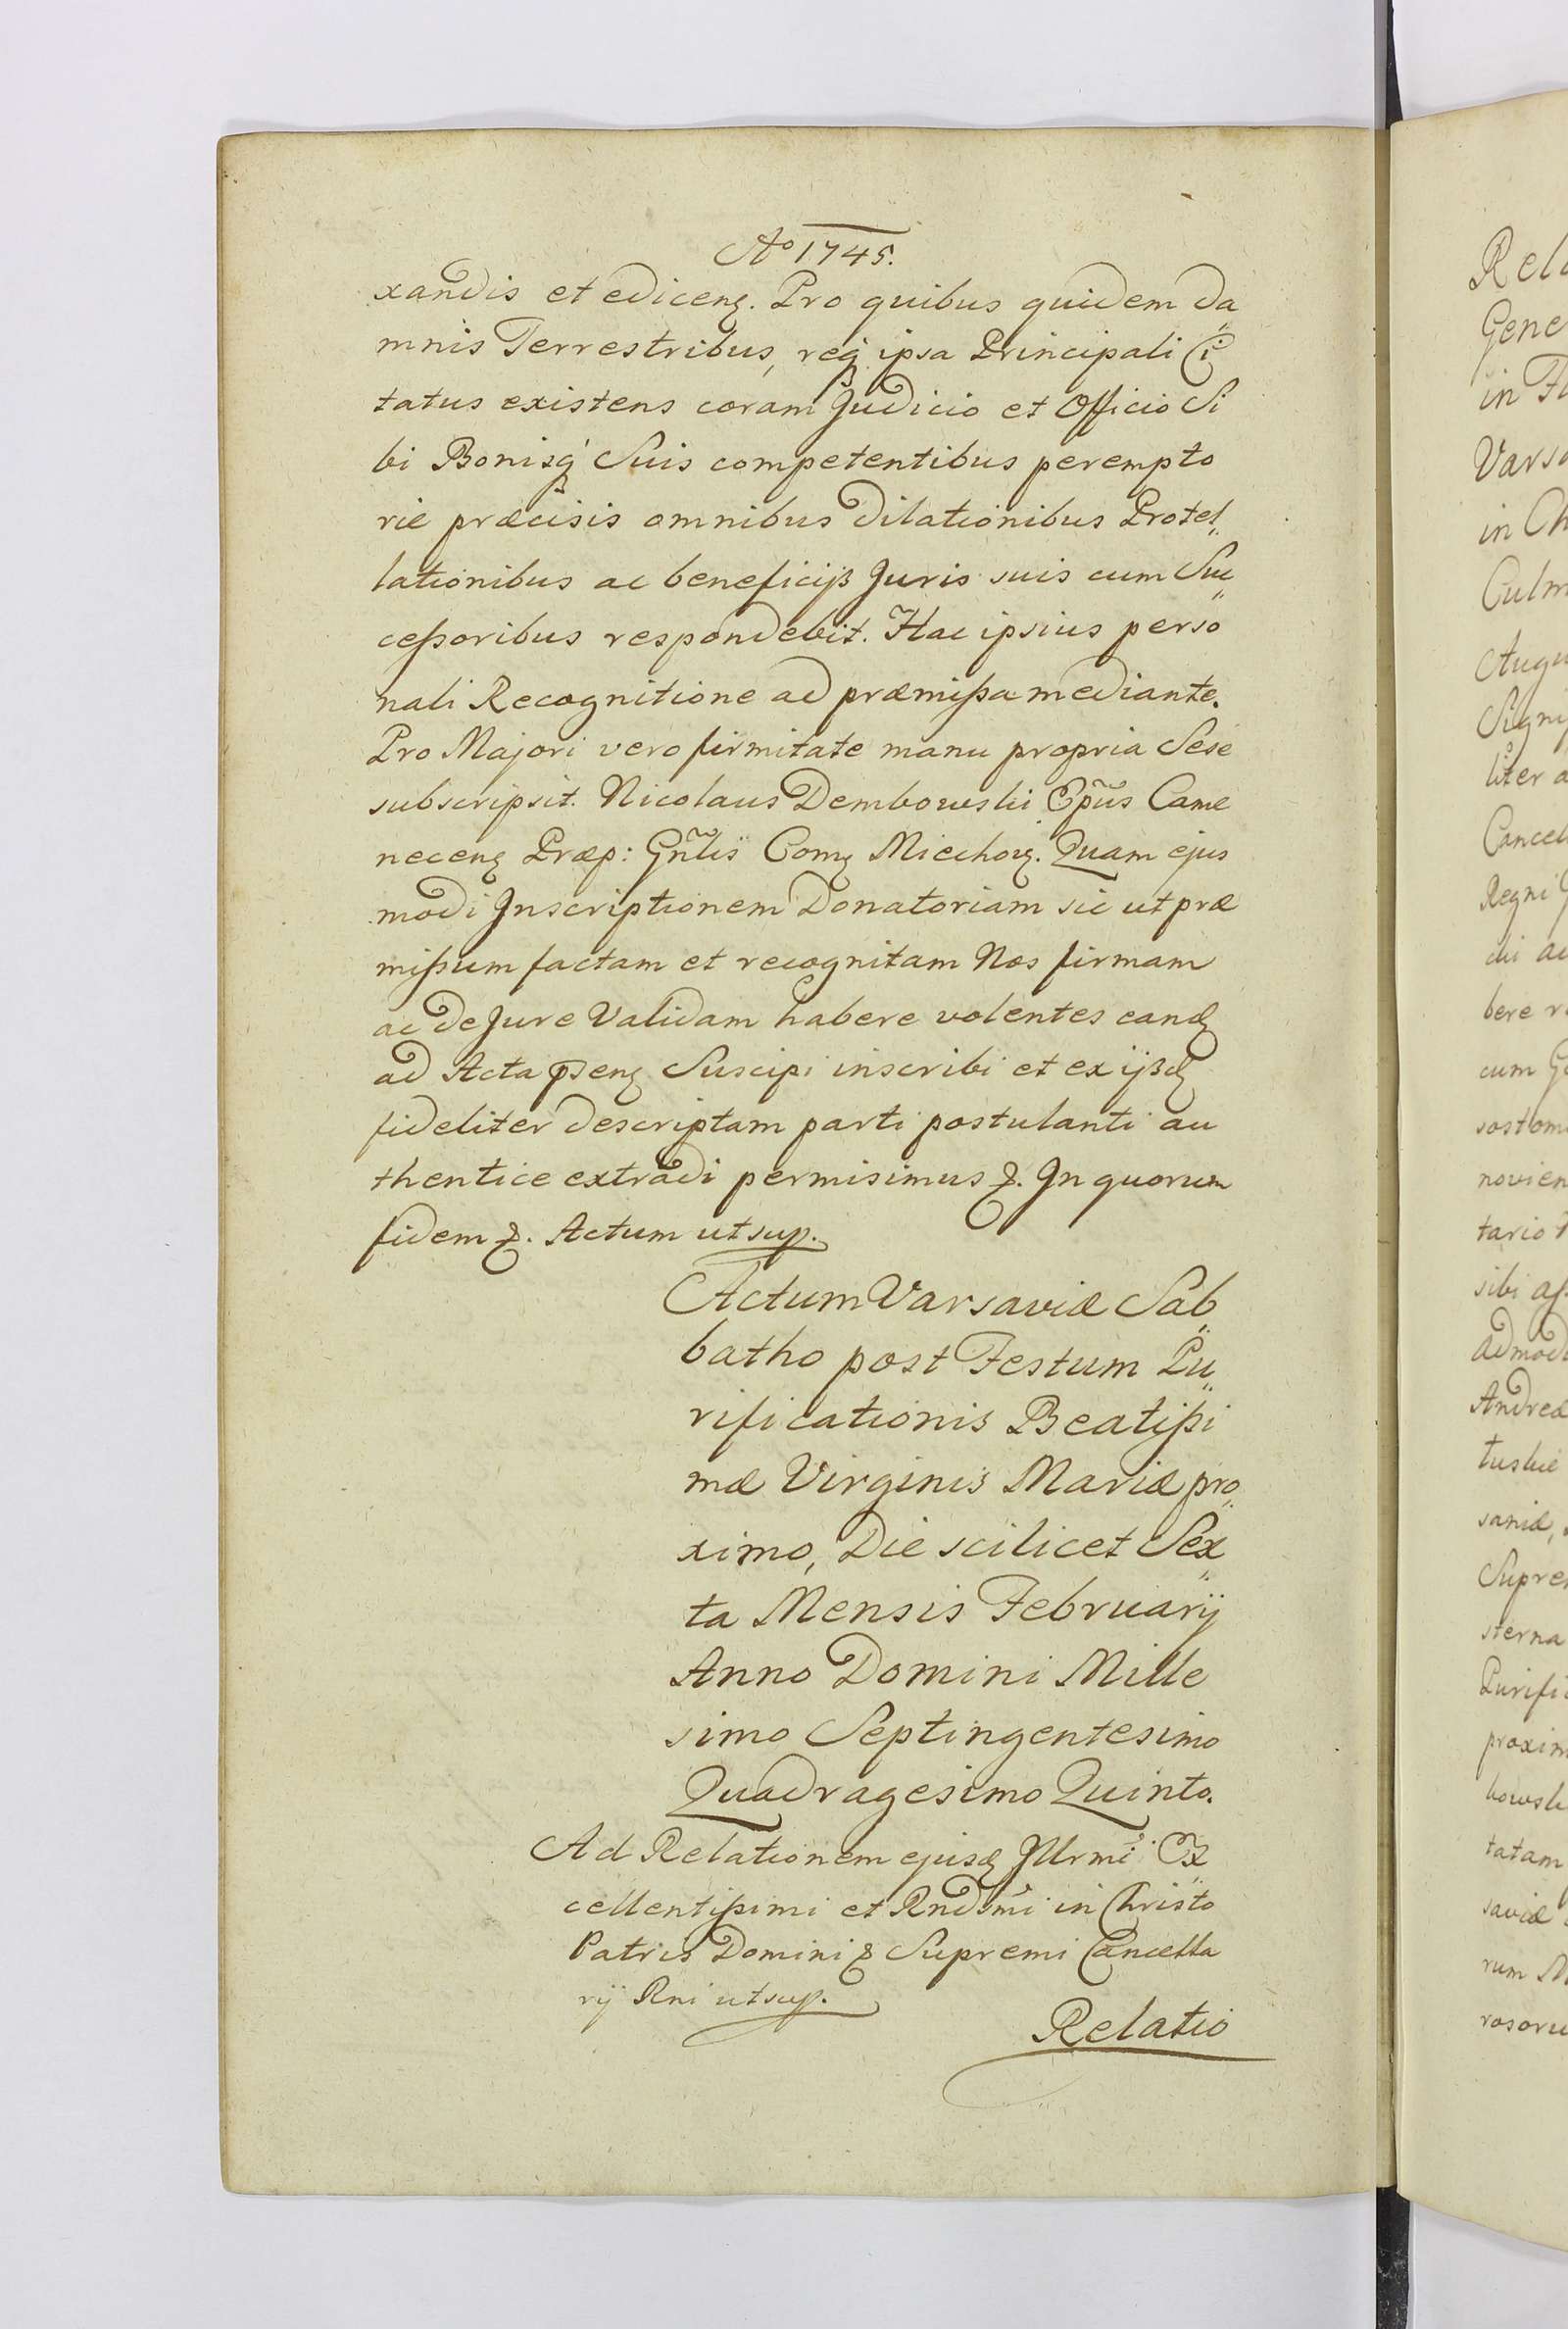 Aº 1745.
xandis et edicenꝫ. Pro quibus quidem da
mnis Terrestribus, reqꝫ ipsa Principali Ci
tatus existens coram Judicio et Officio Si
bi Bonisqꝫ Suis competentibus perempto
rie præcisis omnibus dilationibus Protel„
lationibus ac beneficijß Juris suis cum Suc„
ceßoribus respondebit. Hac ipsius perso
nali Recognitione ad præmißa mediante.
Pro Majori vero firmitate manu propria Sese
subscripsit. Nicolaus Dembowski Epũs Came
necenꝫ Præp: Gñlis Comꝫ Miechoꝫ. Quam ejus
modi Inscriptionem Donatoriam sic ut præ
mißum factam et recognitam Nos firmam
ac de Jure Validam habere volentes eandꝫ
ad Acta pꝛsenꝫ Suscipi inscribi et ex ijßdꝫ
fideliter descriptam parti postulanti au
thentice extradi permisimus ꝫ. In quorum
fidem ꝫ. Actum ut sup.
Actum Varsaviæ Sab„
batho post Festum Pu„
rificationis Beatißi
mæ Virginis Mariæ pro„
ximo, Die scilicet Sex„
ta Mensis Februarij
Anno Domini Mille
simo Septingentesimo
Quadragesimo Quinto.
Ad Relationem ejusdꝫ Jllrmi Ex„
cellentißimi et Rndsmi in Christo
Patris Domini ꝫ Supremi Cancella
rij Rni ut sup.
Relatio
Rela
Gene
in
Varsa
in Ch
Culm
Augu
Sign
liter a
Cancel
Regni
ac
bere
cum
novien
tario
sibi
Admod
Andreæ
saniæ,
Supre
sterna
Purifi
proxim
tatam
saviæ
rum M